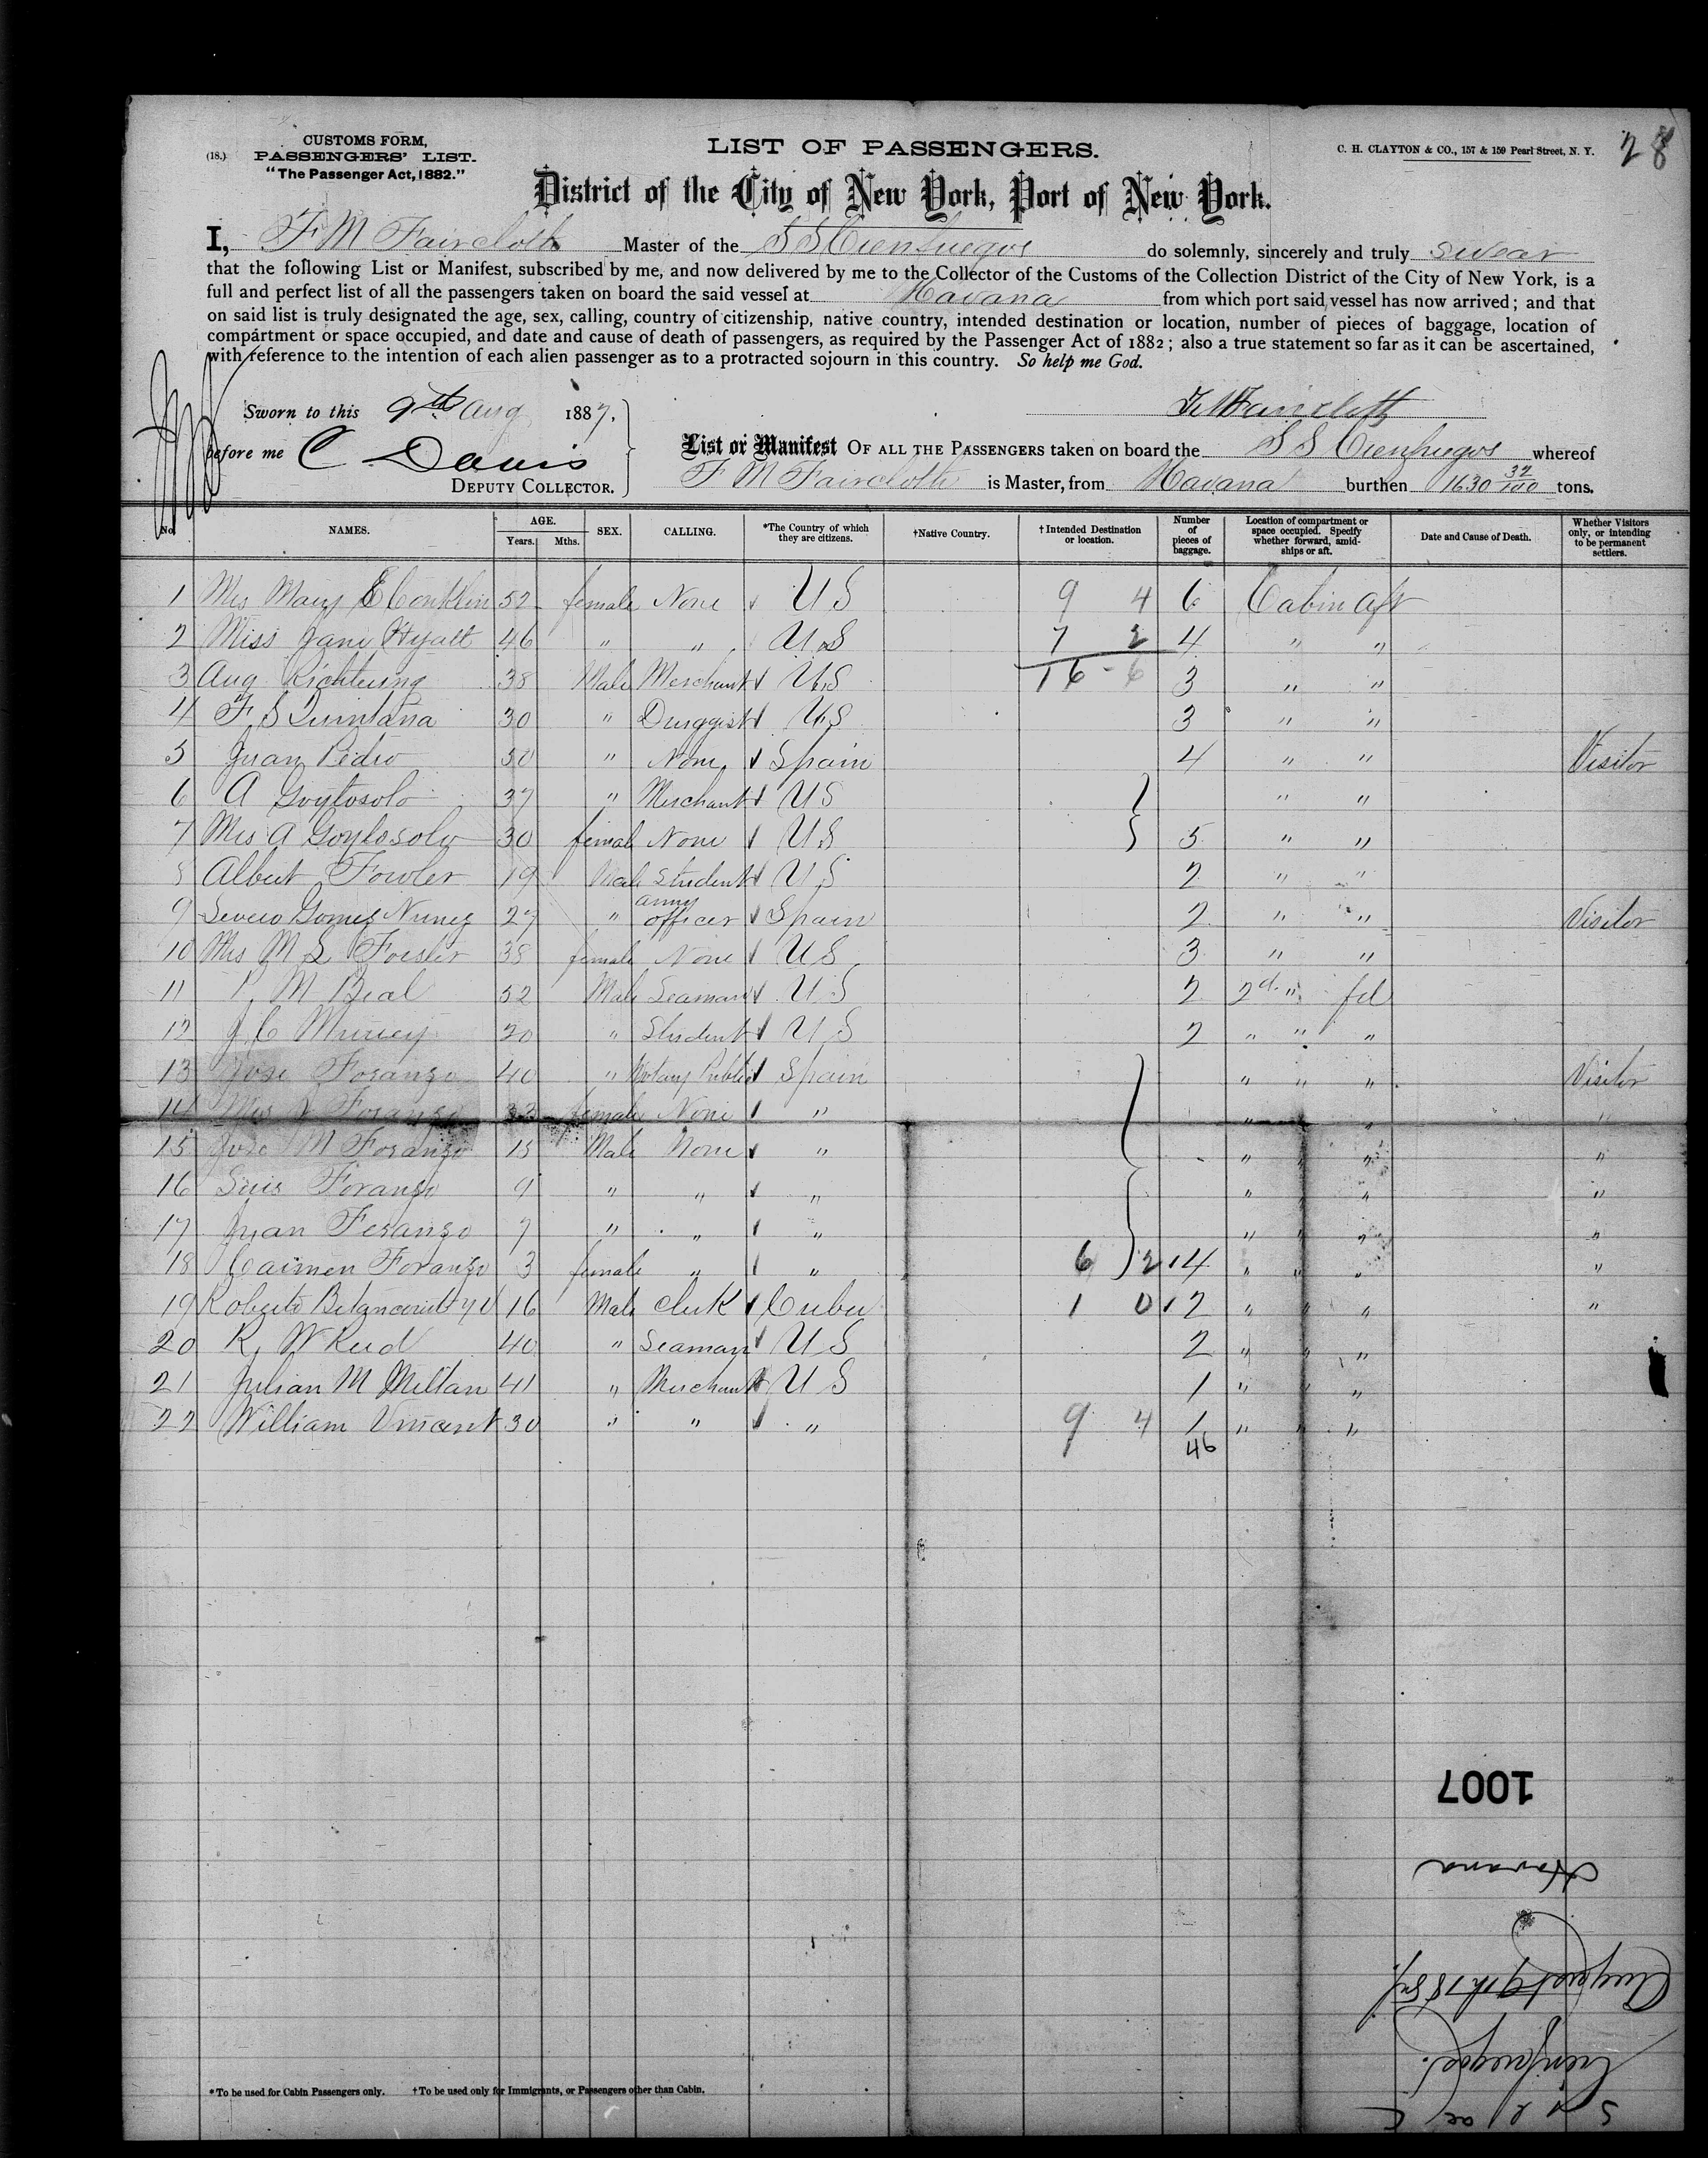 28
CUSTOMS FORM,
(18.) PASSENGERS' LIST.
"The Passenger Act, 1882."
LIST OF PASSENGERS.
C. H. CLAYTON & CO., 157 & 159 Pearl Street, N. Y.
District of the City of New York, Port of New York.
I, F M Faircloth Master of the S S Cienfuegos do solemnly, sincerely and truly swear
that the following List or Manifest, subscribed by me, and now delivered by me to the Collector of the Customs of the Collection District of the City of New York, is a
full and perfect list of all the passengers taken on board the said vessel at Havana from which port said vessel has now arrived; and that
on said list is truly designated the age, sex, calling, country of citizenship, native country, intended destination or location, number of pieces of baggage, location of
compartment or space occupied, and date and cause of death of passengers, as required by the Passenger Act of 1882; also a true statement so far as it can be ascertained,
with reference to the intention of each alien passenger as to a protracted sojourn in this country. So help me God.
Sworn to this 9th Aug 1887.
F M Faircloth
before me C Davis
DEPUTY COLLECTOR.
List or Manifest OF ALL THE PASSENGERS taken on board the S S Cienfuegos whereof
F M Faircloth is Master, from Havana burthen 1630 32/100 tons.
No. NAMES. AGE. Years. Mths. SEX. CALLING. *The Country of which they are citizens. †Native Country. †Intended Destination or location. Number of pieces of baggage. Location of compartment or space occupied. Specify whether forward, amidships or aft. Date and Cause of Death. Whether Visitors only, or intending to be permanent settlers.
1 Mrs Mary E Conklin 52 female None U S 9 4 6 Cabin Aft
2 Miss Jane Hyatt 46 " " U S 7 2 4 " "
3 Aug Richtering 38 Male Merchant U S 16 - 6 3 " "
4 F. S Quintana 30 " Durggist U S 3 " "
5 Juan Pedro 50 " None Spain 4 " " Visitor
6 A Goytosolo 37 " Merchant U S " "
7 Mrs A Goytosolo 30 female None U S 5 " "
8 Albert Fowler 19 Male Student U S 2 " "
9 Severo Gomez Nunez 27 " army officer Spain 2 " " Visitor
10 Mrs M S 38 female None U S 3 " "
11 M Beal 52 Male Seaman U S 2 2d " fd
12 J C 20 " Student U S 2 " " "
13 Jose Foranzo 40 " Notary Public Spain " " " Visitor
14 Mrs Foranzo female None " " " " "
15 Jose M Foranzo 15 Male None " " " " "
16 Luis Foranzo 9 " " " " " " "
17 Juan Foranzo 7 " " " " " " "
18 Carmen Foranzo 3 female " " 6 2 14 " " " "
19 Roberto Betancourt 16 Male Clerk Cuba 1 0 2 " " " "
20 R W Reid 40 " Seaman U S 2 " " "
21 Julian M Millan 41 " Merchant U S 1 " "
22 William Vincent 30 " " " 9 4 1 " " "
46
*To be used for Cabin Passengers only. †To be used only for Immigrants, or Passengers other than Cabin.
Cienfuegos.
August 9th 1887.
Havana
1007